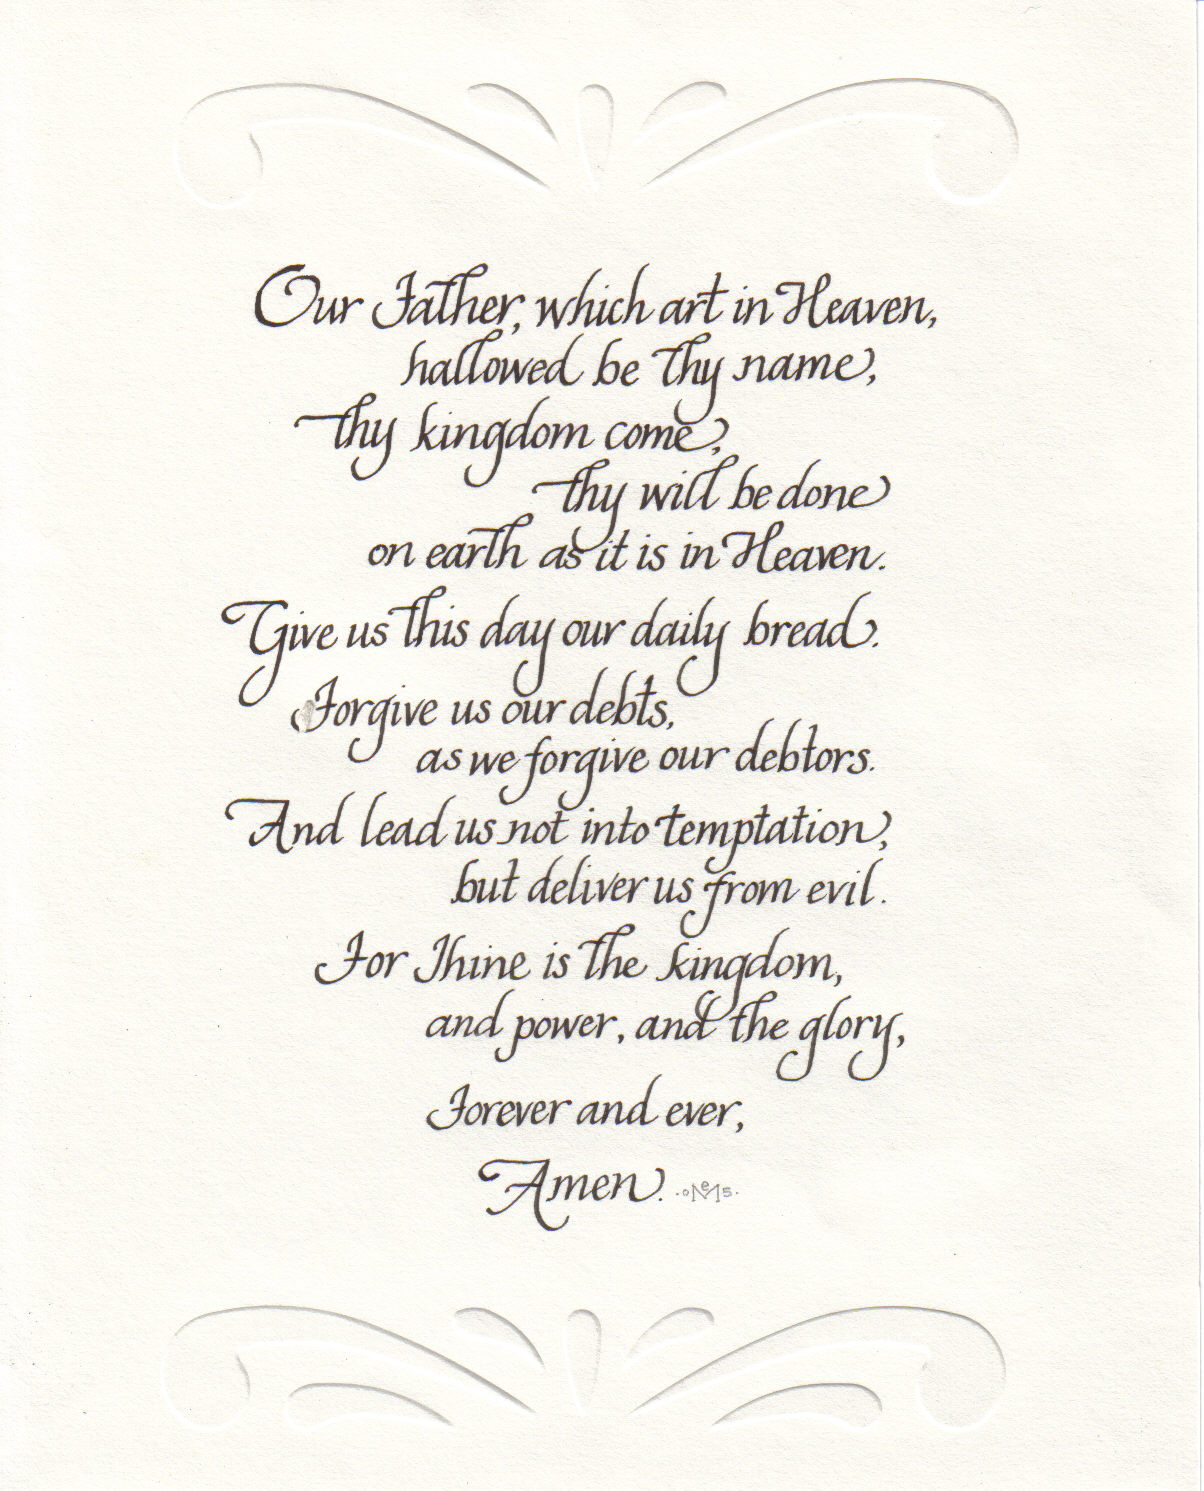 Our Father, which art in Heaven,
hallowed be thy name,
thy kingdom come,
thy will be done
on earth as it is in Heaven.
Give us this day our daily bread.
Forgive us our debts,
as we forgive our debtors.
And lead us not into temptation,
but deliver us from evil.
For Thine is the kingdom,
and power, and the glory,
Forever and ever,
Amen.